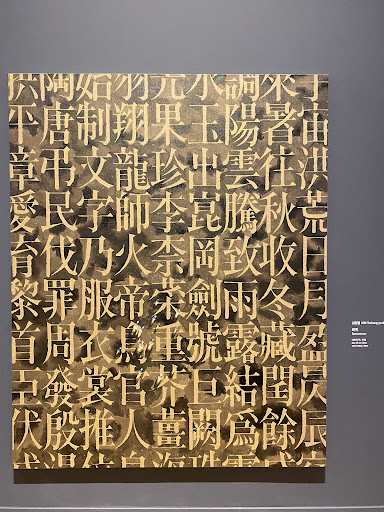 宇宙洪荒日月盈昃辰宿
來暑往秋收冬藏閏餘成
調陽雲騰致雨露結爲霜
水玉出崑岡劍號巨闕珠
光果珍李柰菜重芥薑海
羽翔龍師火帝鳥官人皇
始制文字乃服衣裳推位
陶唐弔民伐罪周發殷湯
拱平章愛育黎首臣伏戎
김창열 KIM Tschang-yeul
회귀
Recurrence